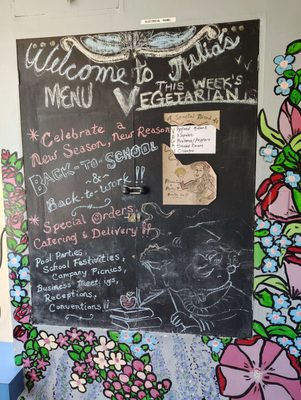 ELECTRICAL PANEL
Welcome to Julia's
MENU
THIS WEEK'S
VEGETARIAN
* Celebrate a
New Season, New Reason
BACK-TO-SCHOOL
&
Back-to-work!!
* Special Orders,
Catering & Delivery!!
Pool Parties,
School Festivities,
Company Picnics,
Business Meetings,
Receptions,
Conventions!!
A Special Blend of